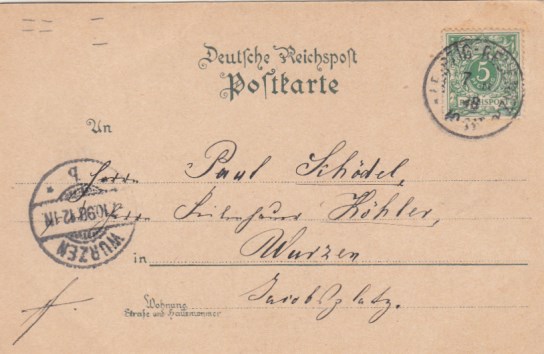 Deutsche Reichspost
Postkarte
LEIPZIG-
5
REICHSPOST
An
Herrn Paul Schödel,
Herrn Köhler,
in Wurzen
Jacobsplatz.
Wohnung
Straße und Hausnummer
WURZEN
7.10.98.12-1N.
* b